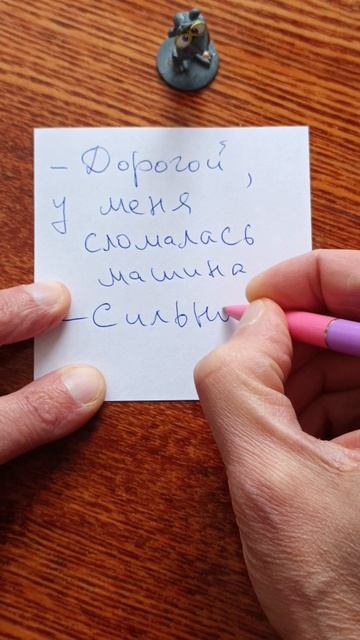 - Дорогой,
у меня
сломалась
машина
- Сильн